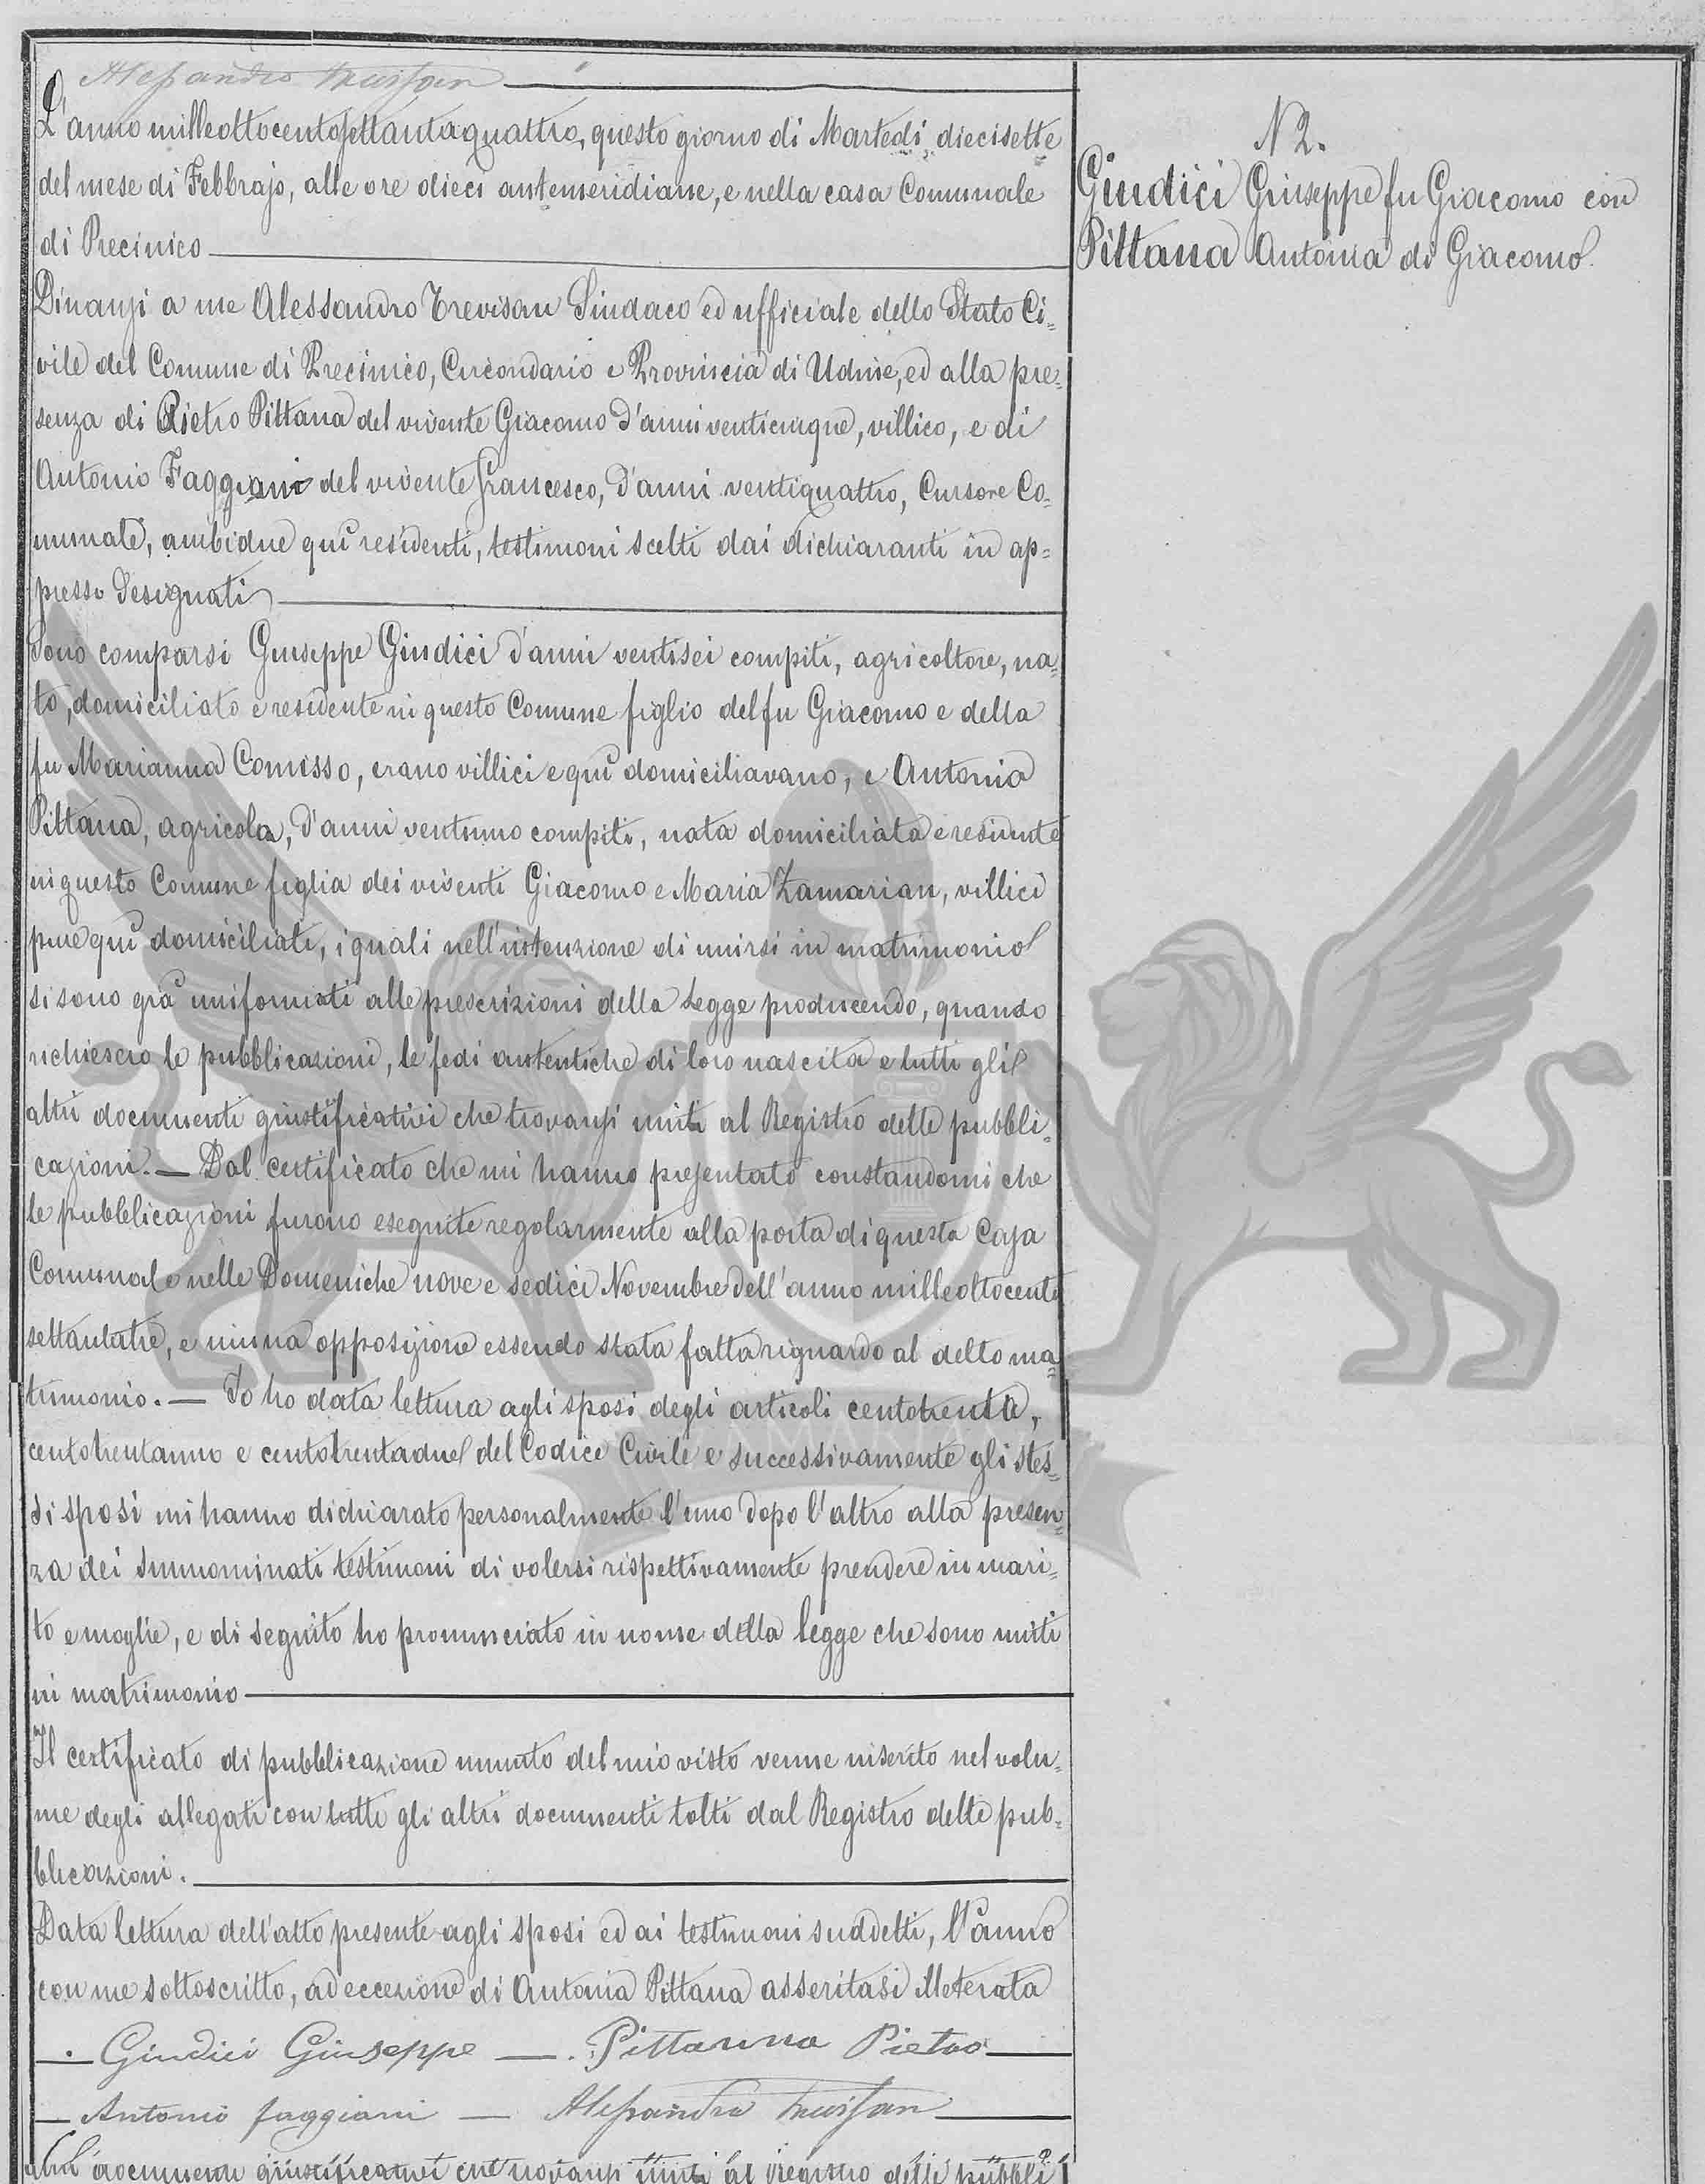 Alessandro Trevisan
L'anno milleottocentosettantaquattro, questo giorno di Martedì diecisette
del mese di Febbrajo, alle ore dieci antemeridiane, e nella casa Comunale
di Precinico
Dinanzi a me Alessandro Trevisan Sindaco ed ufficiale dello Stato Ci=
vile del Comune di Precinico, Circondario e Provincia di Udine, ed alla pre=
senza di Pietro Pittana del vivente Giacomo d'anni venticinque, villico, e di
Antonio Faggiani del vivente Francesco, d'anni ventiquattro, Cursore Co=
munale, ambidue qui residenti, testimoni scelti dai dichiaranti in ap=
presso designati
Sono comparsi Giuseppe Giudici d'anni ventisei compiti, agricoltore, na=
to, domiciliato e residente in questo Comune figlio del fu Giacomo e della
fu Marianna Comisso, erano villici e qui domiciliavano, e Antonia
Pittana, agricola, d'anni ventuno compiti, nata domiciliata e residente
in questo Comune figlia dei viventi Giacomo e Maria Zamarian, villici
pure qui domiciliati, i quali nell'intenzione di unirsi in matrimonio
si sono già uniformati alle prescrizioni della Legge producendo, quando
richiesero le pubblicazioni, le fedi autentiche di loro nascita e tutti gli
altri documenti giustificativi che trovansi uniti al Registro delle pubbli=
cazioni. — Dal certificato che mi hanno presentato constandomi che
le pubblicazioni furono eseguite regolarmente alla porta di questa Casa
Comunale nelle Domeniche nove e sedici Novembre dell'anno milleottocento
settantatre, e niuna opposizione essendo stata fatta riguardo al detto ma=
trimonio. — Io ho data lettura agli sposi degli articoli centotrenta,
centotrentanno e centotrentadue del Codice Civile e successivamente gli stes=
si sposi mi hanno dichiarato personalmente l'uno dopo l'altro alla presen=
za dei sunnominati testimoni di volersi rispettivamente prendere in mari=
to e moglie, e di seguito ho pronunciato in nome della legge che sono uniti
in matrimonio
Il certificato di pubblicazione munito del mio visto venne inserito nel volu=
me degli allegati con tutti gli altri documenti tolti dal Registro delle pub=
blicazioni.
Data lettura dell'atto presente agli sposi ed ai testimoni suddetti, l'anno
con me sottoscritto, ad eccezione di Antonia Pittana asseritasi illeterata
Giudici Giuseppe — Pittanna Pietro
Antonio faggiani — Alessandro Trevisan
altri documenti giustificativi che trovansi uniti al Registro delle pubbli
N 2.
Giudici Giuseppe fu Giacomo con
Pittana Antonia di Giacomo